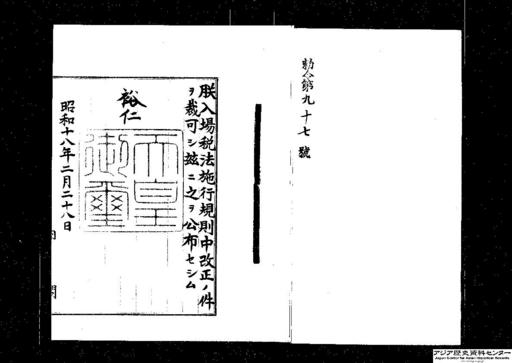 勅令第九十七號
朕入場税法施行規則中改正ノ件
ヲ裁可シ玆ニ之ヲ公布セシム
裕仁
天皇御璽
昭和十八年二月二十八日
内
閣
アジア歴史資料センター
Japan Center for Asian Historical Records